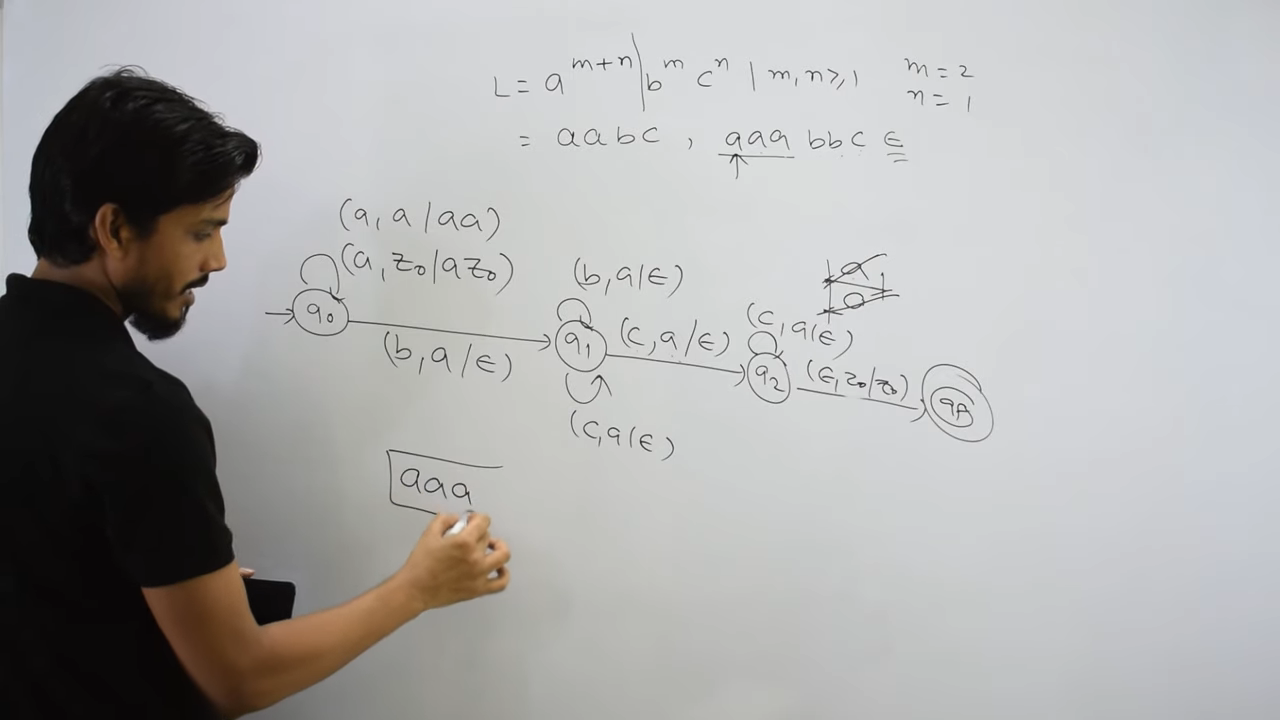 L = a^{m+n} | b^m c^n | m, n ≥, 1 m = 2
n = 1
= aabc , aaa bbc ∈
(a, a / aa)
(a, z₀ / az₀)
q₀
(b, a / ∈)
(b, a / ∈)
q₁
(c, a / ∈)
(c, a / ∈)
a
a
(c, a / ∈)
q₂
(∈, z₀ / z₀)
aaa